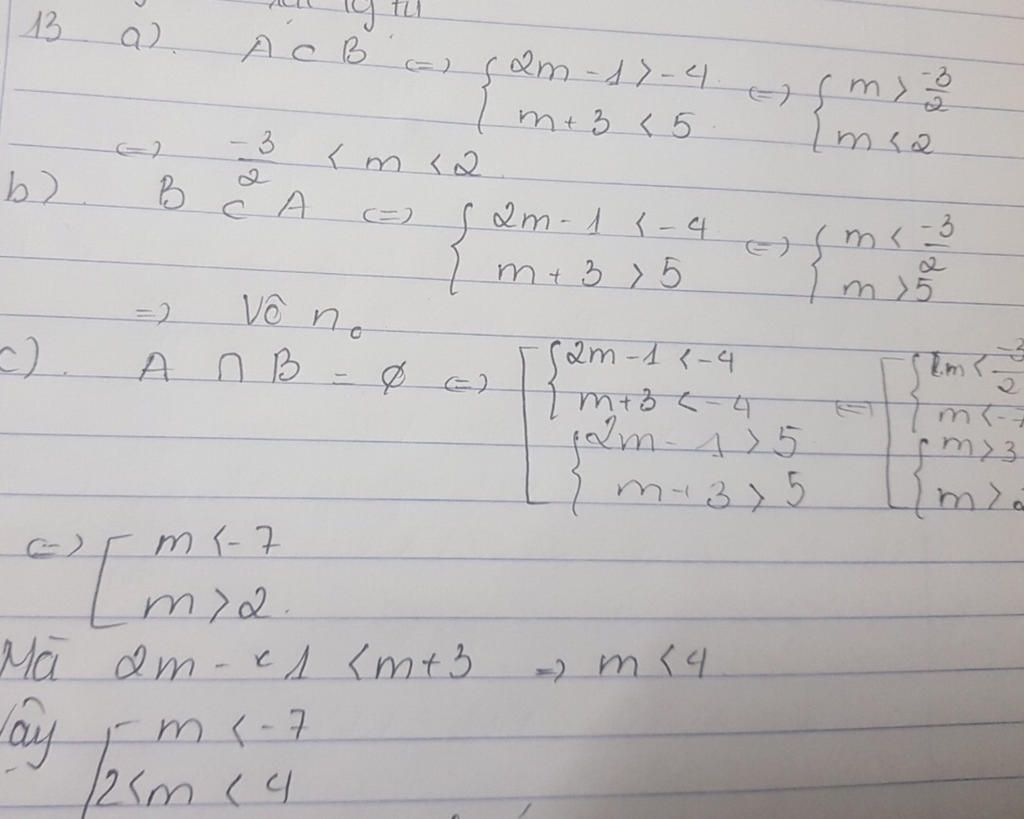 13 a). A ⊂ B <=> { 2m - 1 > -4 <=> { m > -3/2
m + 3 < 5 m < 2
<=> -3/2 < m < 2
b) B ⊂ A <=> { 2m - 1 < -4 <=> { m < -3/2
m + 3 > 5 m > 5
=> Vô n.
c). A ∩ B = ∅ <=> [ { 2m - 1 < -4 <=> [ { m < -3/2
m + 3 < -4 m < -7
{ 2m - 1 > 5 { m > 3
m + 3 > 5 m > 2
<=> [ m < -7
m > 2.
Mà 2m - 1 < m + 3 => m < 4
Vậy [ m < -7
2 < m < 4